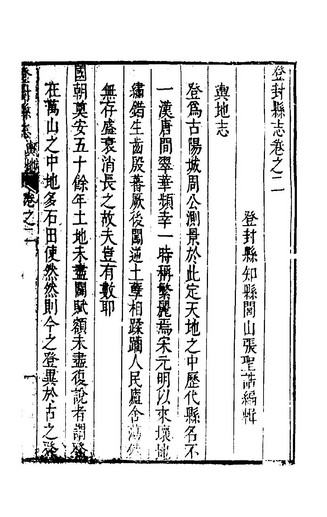 登封縣志卷之二
登封縣知縣閭山張聖誥編輯
輿地志
登爲古陽城周公測景於此定天地之中歷代縣名不
一漢唐間翠華頻幸一時稱繁麗焉宋元明以來壤地
繡錯生齒殷蕃厥後闖逆土孽相蹂躪人民廬舍蕩然
無存盛衰消長之故夫豈有數耶
國朝奠安五十餘年土地未盡闢賦額未盡復說者謂登
在萬山之中地多石田使然然則今之登異於古之登
登封縣志 輿地 卷之二 一